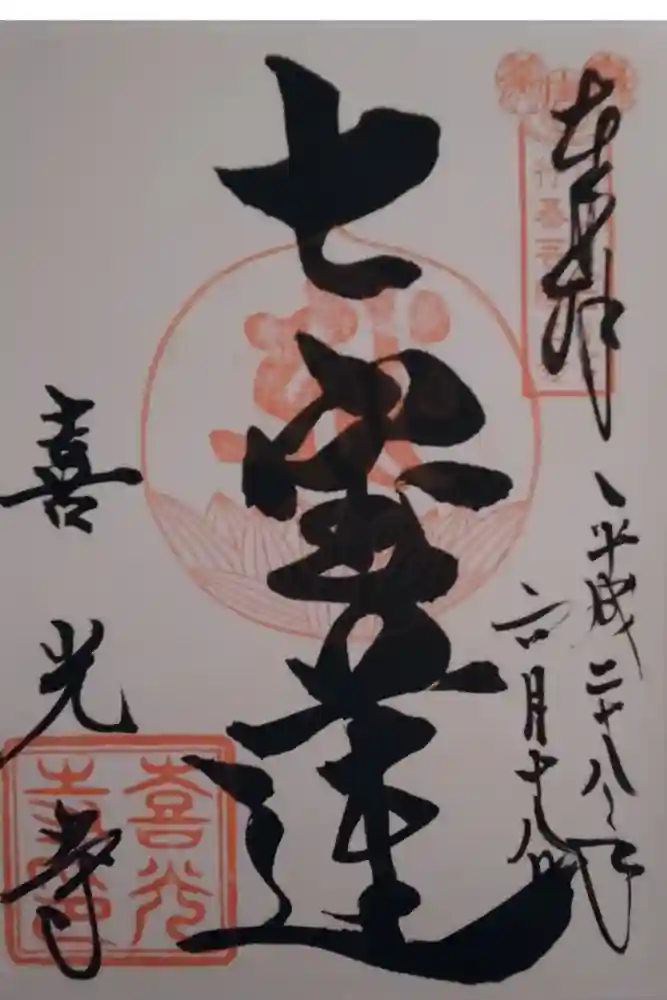 奉拝
平成二十八年
六月十八日
七宝蓮
喜光寺
喜光
寺印